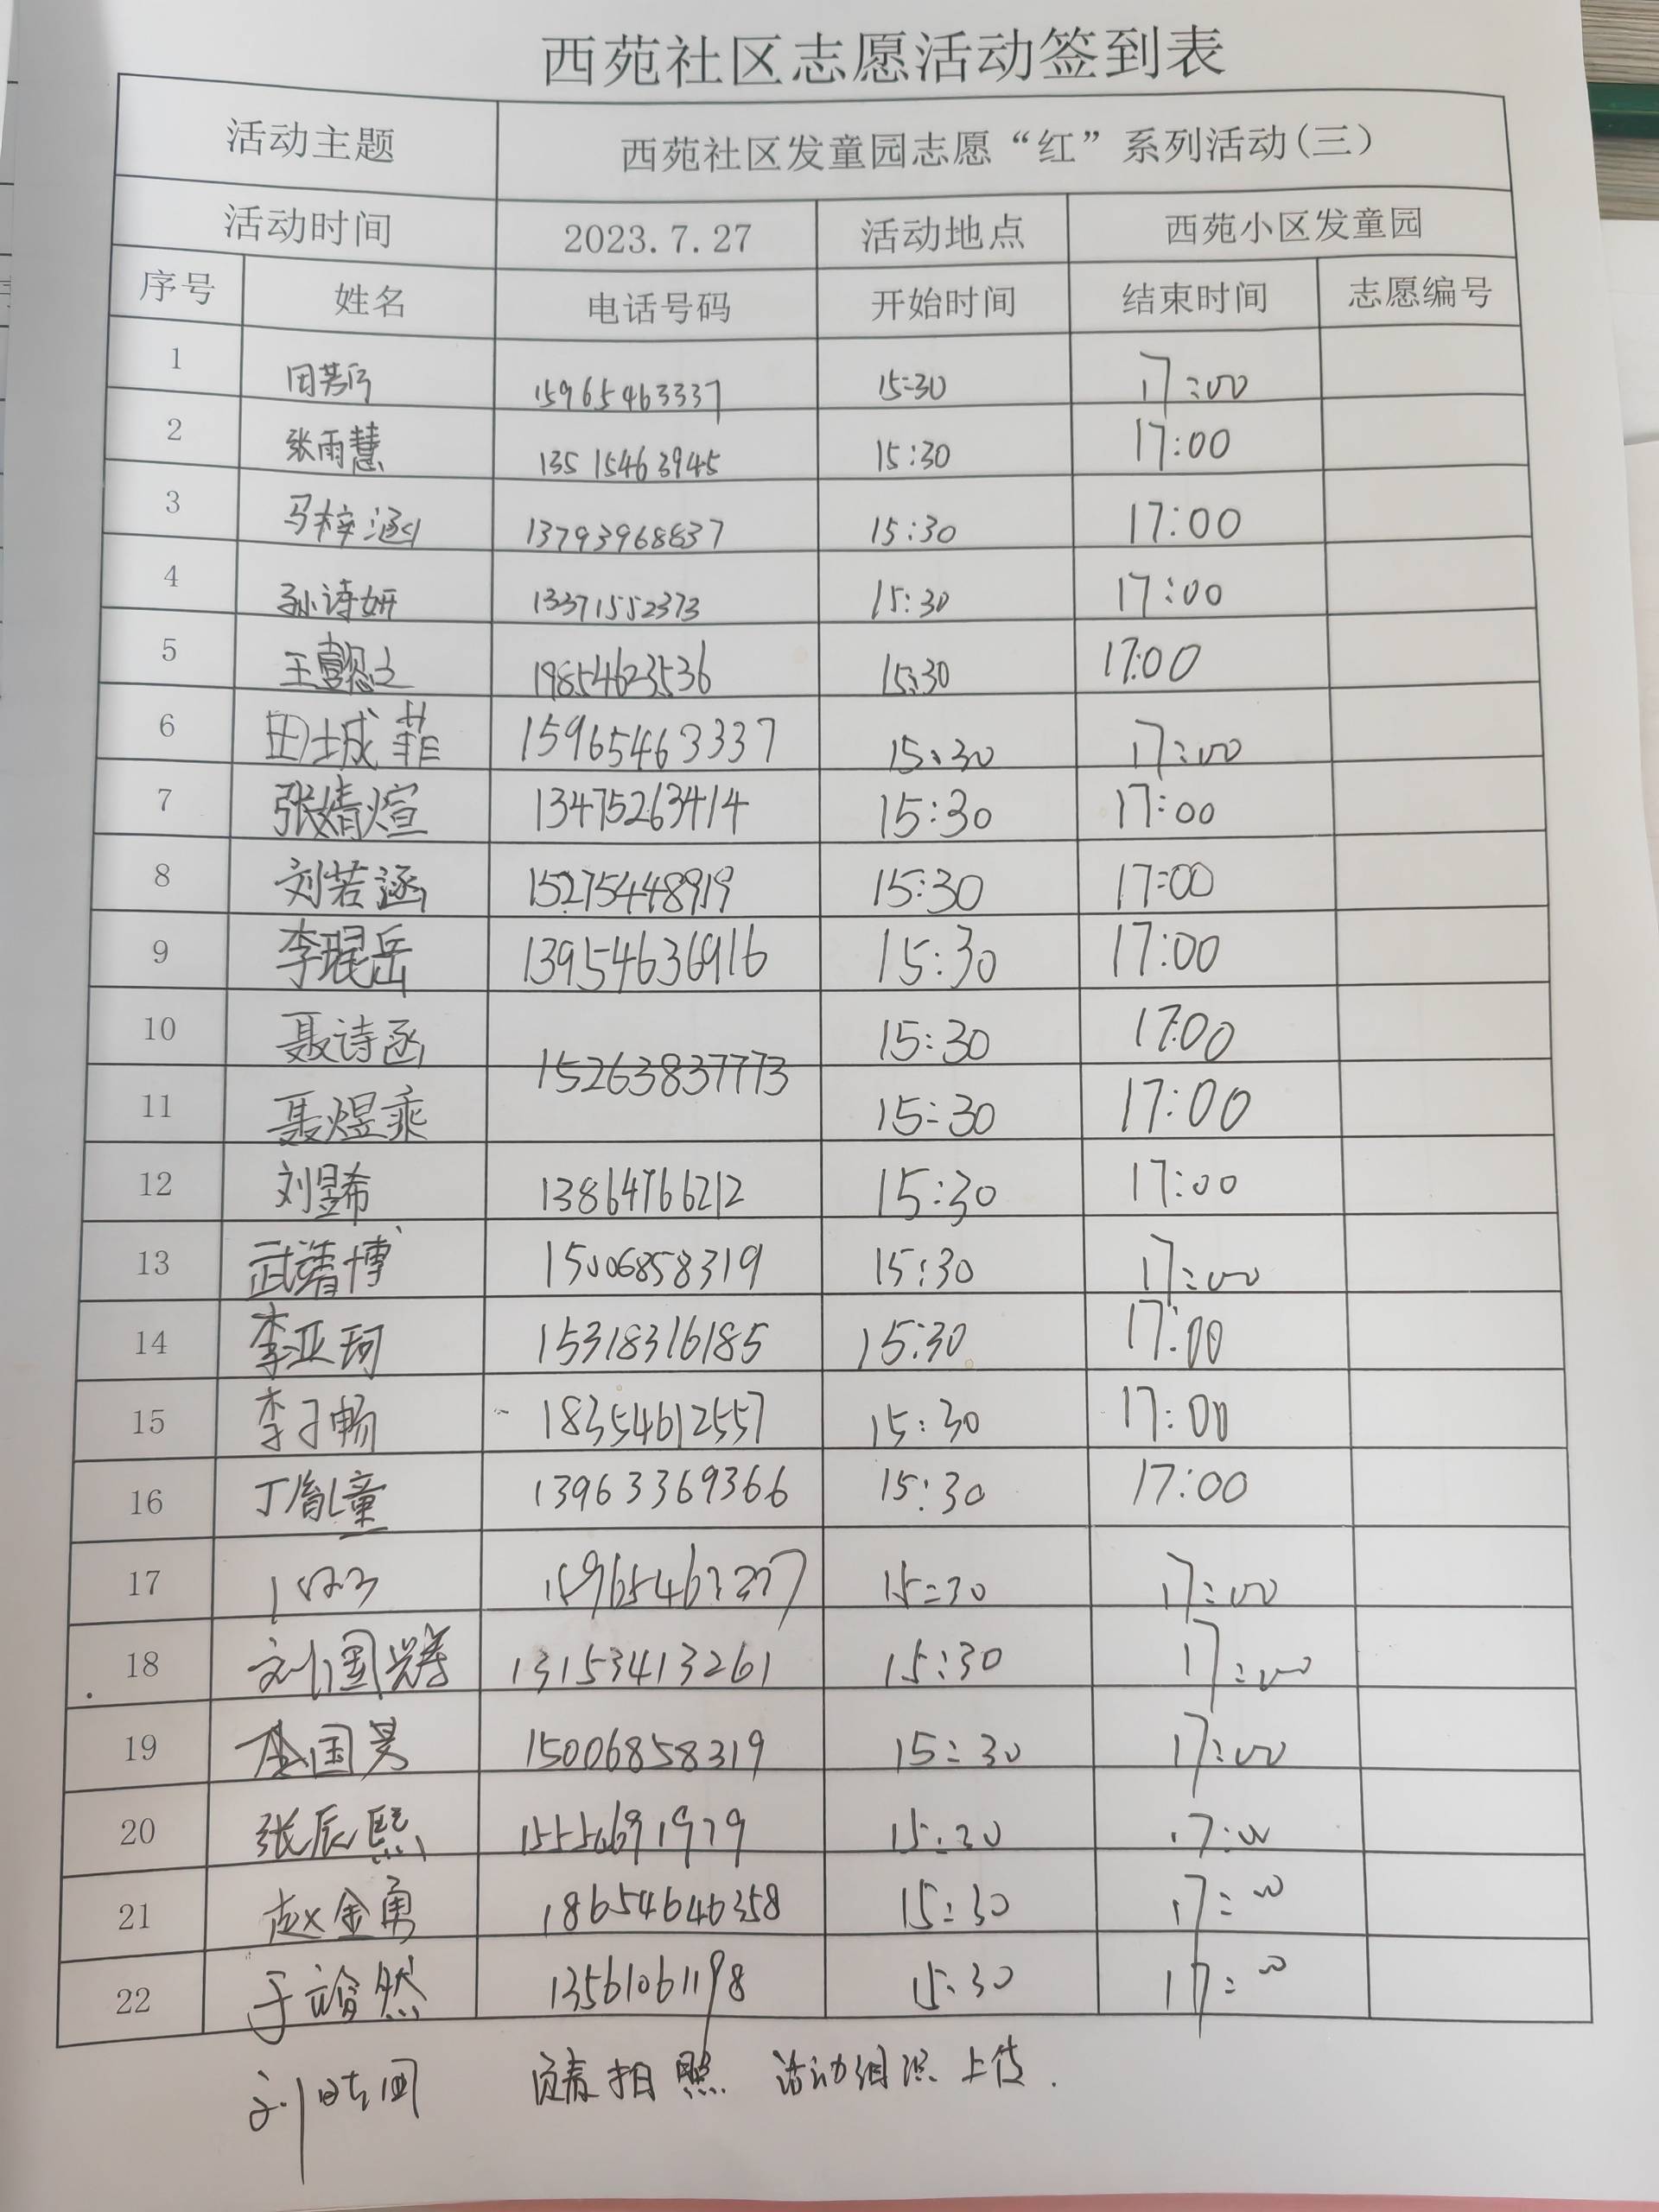 西苑社区志愿活动签到表
活动主题 西苑社区发童园志愿“红”系列活动(三)
活动时间 2023.7.27 活动地点 西苑小区发童园
序号 姓名 电话号码 开始时间 结束时间 志愿编号
1 15965463337 15:30 17:00
2 张雨慧 13515463945 15:30 17:00
3 马梓涵 13793968837 15:30 17:00
4 孙诗妍 13371552373 15:30 17:00
5 19854623536 15:30 17:00
6 田城菲 15965463337 15:30 17:00
7 张婧煊 13475263414 15:30 17:00
8 刘若涵 15275448919 15:30 17:00
9 李琨岳 13954636916 15:30 17:00
10 聂诗函 15:30 17:00
15263837773
11 聂煜乘 15:30 17:00
12 刘昱希 13864766212 15:30 17:00
13 武靖博 15006858319 15:30 17:00
14 李亚珂 15318316185 15:30 17:00
15 李子畅 18354612557 15:30 17:00
16 丁胤童 13963369366 15:30 17:00
17 15:30 17:00
18 刘国 13153413261 15:30 17:00
19 国 15006858319 15:30 17:00
20 张辰熙 15:30 17:00
21 赵金勇 18654646358 15:30 17:00
22 于 然 13561061198 15:30 17:00
刘 请拍照 活动组织上传.